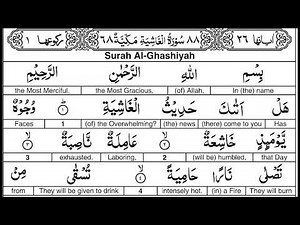 اٰیاتها ٢٦ ٨٨ سُوْرَةُ الْغَاشِيَةِ مَكِّيَّةٌ ٦٨ رکوعها ١
Surah Al-Ghashiyah
بِسْمِ اللّٰهِ الرَّحْمٰنِ الرَّحِيْمِ
the Most Merciful. the Most Gracious, (of) Allah. In (the) name
هَلْ اَتٰىكَ حَدِيْثُ الْغَاشِيَةِ ١ وُجُوْهٌ
Faces 1 (of) the Overwhelming? (the) news (there) come to you Has
يَّوْمَىِٕذٍ خَاشِعَةٌ ٢ عَامِلَةٌ نَّاصِبَةٌ ٣
3 exhausted. Laboring, 2 (will be) humbled, that Day
تَصْلٰى نَارًا حَامِيَةً ٤ تُسْقٰى مِنْ
from They will be given to drink 4 intensely hot. (in) a Fire They will burn